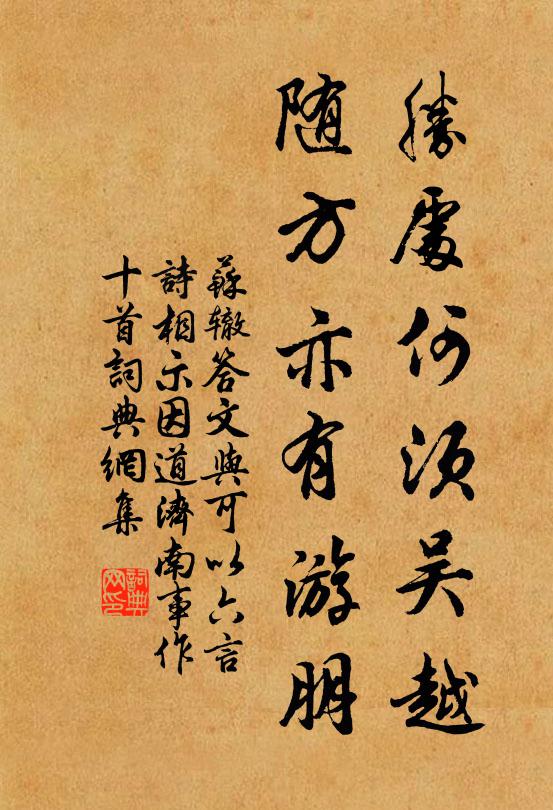 勝處何須吴越
随方亦有游朋
蘇辙答文與可以六言
詩相示因道濟南事作
十首詞典網集
詞典网印